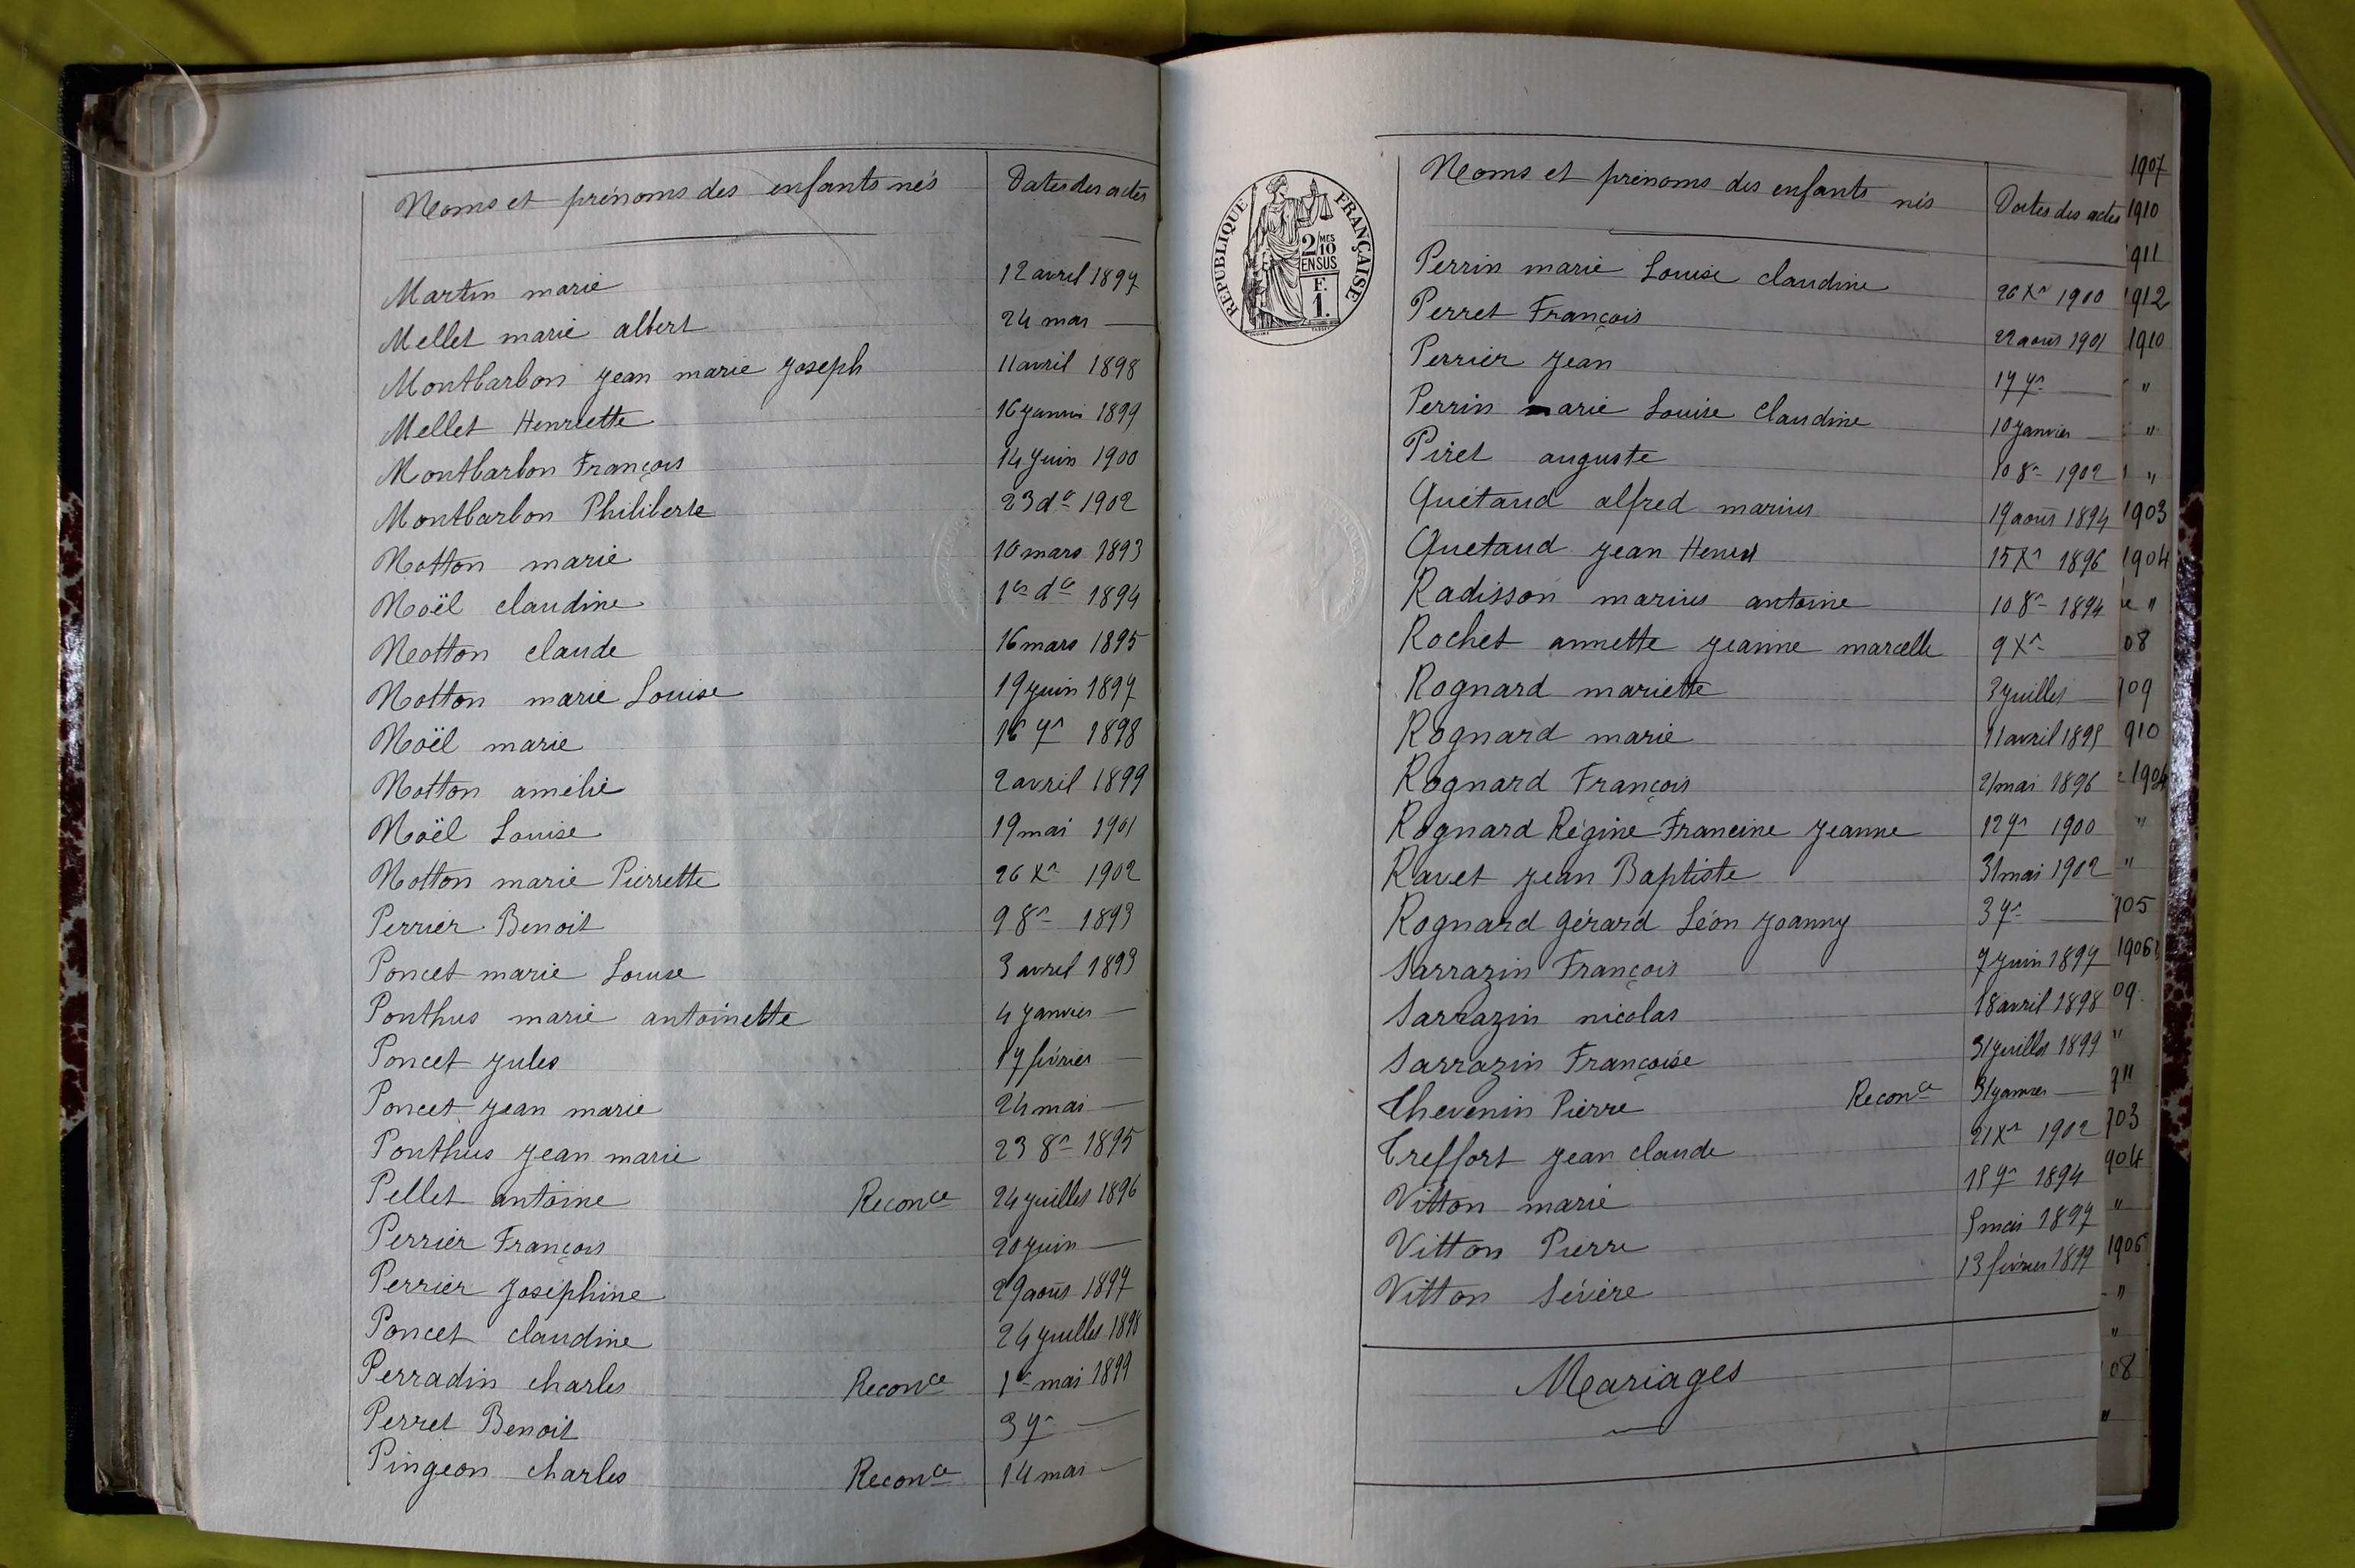 Noms et prénoms des enfants nés Dates des actes
Martin marie 12 avril 1897
Mellet marie albert 24 mai —
Montbarbon Jean marie Joseph 11 avril 1898
Mellet Henriette 16 Janvier 1899
Montbarbon François 14 Juin 1900
Montbarbon Philiberte 23 do 1902
Notton marie 10 mars 1893
Noël claudine 1er do 1894
Notton claude 16 mars 1895
Notton marie Louise 19 Juin 1897
Noël marie 16 7re 1898
Notton amélie 2 avril 1899
Noël Louise 19 mai 1901
Notton marie Pierrette 26 Xre 1902
Perrier Benoit 9 8re 1893
Poncet marie Louise 3 avril 1893
Ponthus marie antoinette 4 Janvier —
Poncet Jules 17 février —
Poncet Jean marie 24 mai —
Ponthus Jean marie 23 8re 1895
Pellet antoine Reconce 24 Juillet 1896
Perrier François 20 Juin —
Perrier Joséphine 29 août 1897
Poncet claudine 24 Juillet 1898
Perradin charles Reconce 1er mai 1899
Perret Benoit 3 7re —
Pingeon charles Reconce 14 mai —
REPUBLIQUE FRANÇAISE
2/10 MES
EN SUS
F.
1.
Noms et prénoms des enfants nés Dates des actes
Perrin marie Louise claudine 26 Xre 1900
Perret François 22 août 1901
Perrier Jean 17 7re —
Perrin marie Louise Claudine 10 Janvier —
Piret auguste 10 8re 1902
Quétaud alfred marius 19 août 1894
Quetaud Jean Henri 15 Xre 1896
Radisson marius antoine 10 8re 1894
Rochet annette Jeanne marcelle 9 Xre —
Rognard mariette 3 Juillet —
Rognard marie 11 avril 1895
Rognard François 21 mai 1896
Rognard Régine Francine Jeanne 12 9re 1900
Ravet Jean Baptiste 31 mai 1902
Rognard Gérard Léon Joanny 3 7re —
Sarrazin François 7 Juin 1897
Sarrazin nicolas 18 avril 1898
Sarrazin Françoise 31 Juillet 1899
Thevenin Pierre Reconce 31 Janvier —
Treffort Jean claude 21 Xre 1902
Vitton marie 18 7re 1894
Vitton Pierre 5 mai 1897
Vitton Sévère 13 février 1899
Mariages
1907
1910
911
1912
1910
"
"
"
1903
1904
"
08
09
910
1904
"
"
905
1906
09
"
"
903
904
"
1906
"
"
08
"